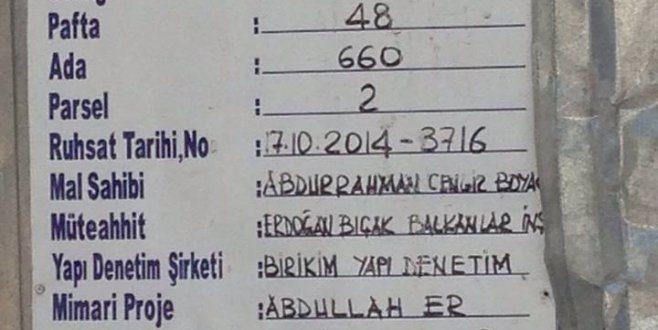 Pafta : 48
Ada : 660
Parsel : 2
Ruhsat Tarihi,No : 17.10.2014-3716
Mal Sahibi : ABDURRAHMAN CENGİZ BOYA
Müteahhit : ERDOĞAN BIÇAK BALKANLAR İNŞ
Yapı Denetim Şirketi : BİRİKİM YAPI DENETİM
Mimari Proje : ABDULLAH ER